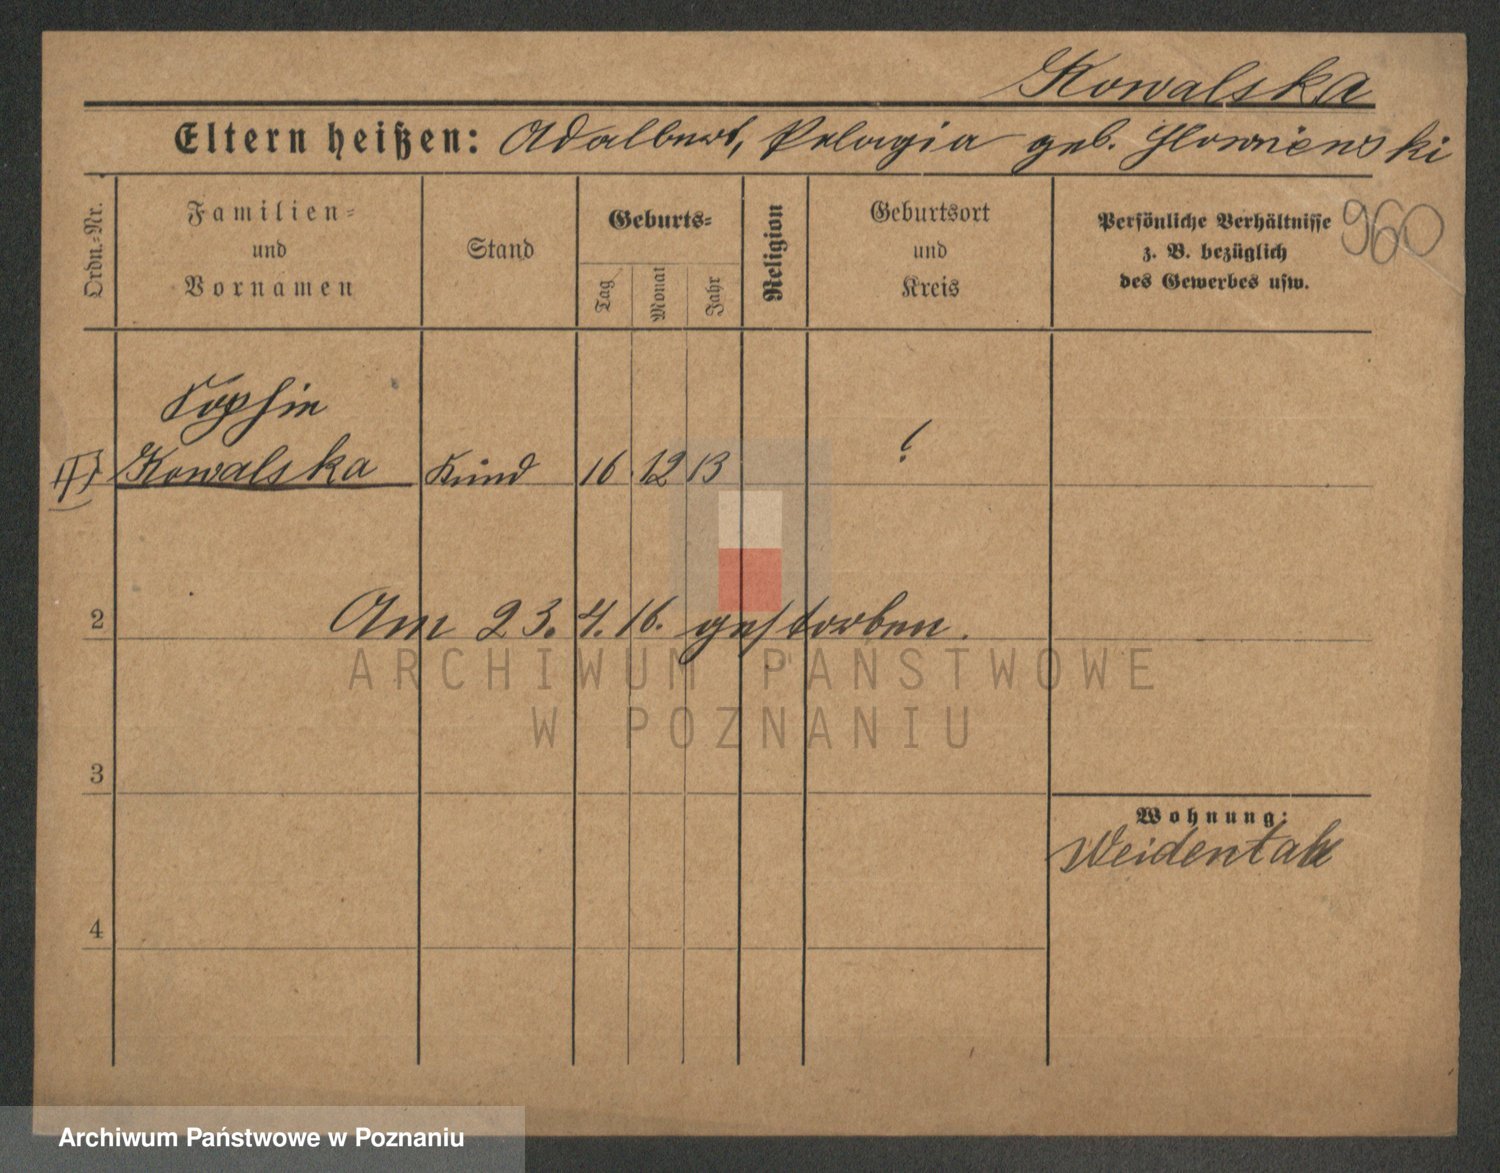 Kowalska
Eltern heißen: Adalbert, Pelagia geb. Glowienski
Ordn.-Nr.
Familien-
und
Vornamen
Stand
Geburts-
Tag
Monat
Jahr
Religion
Geburtsort
und
Kreis
Persönliche Verhältnisse
z. B. bezüglich
des Gewerbes usw.
960
Sophie
Kowalska Kind 16. 12 13 ?
2 Am 23. 4. 16. gestorben.
ARCHIWUM PAŃSTWOWE
W POZNANIU
3
Wohnung:
Weidental
4
Archiwum Państwowe w Poznaniu